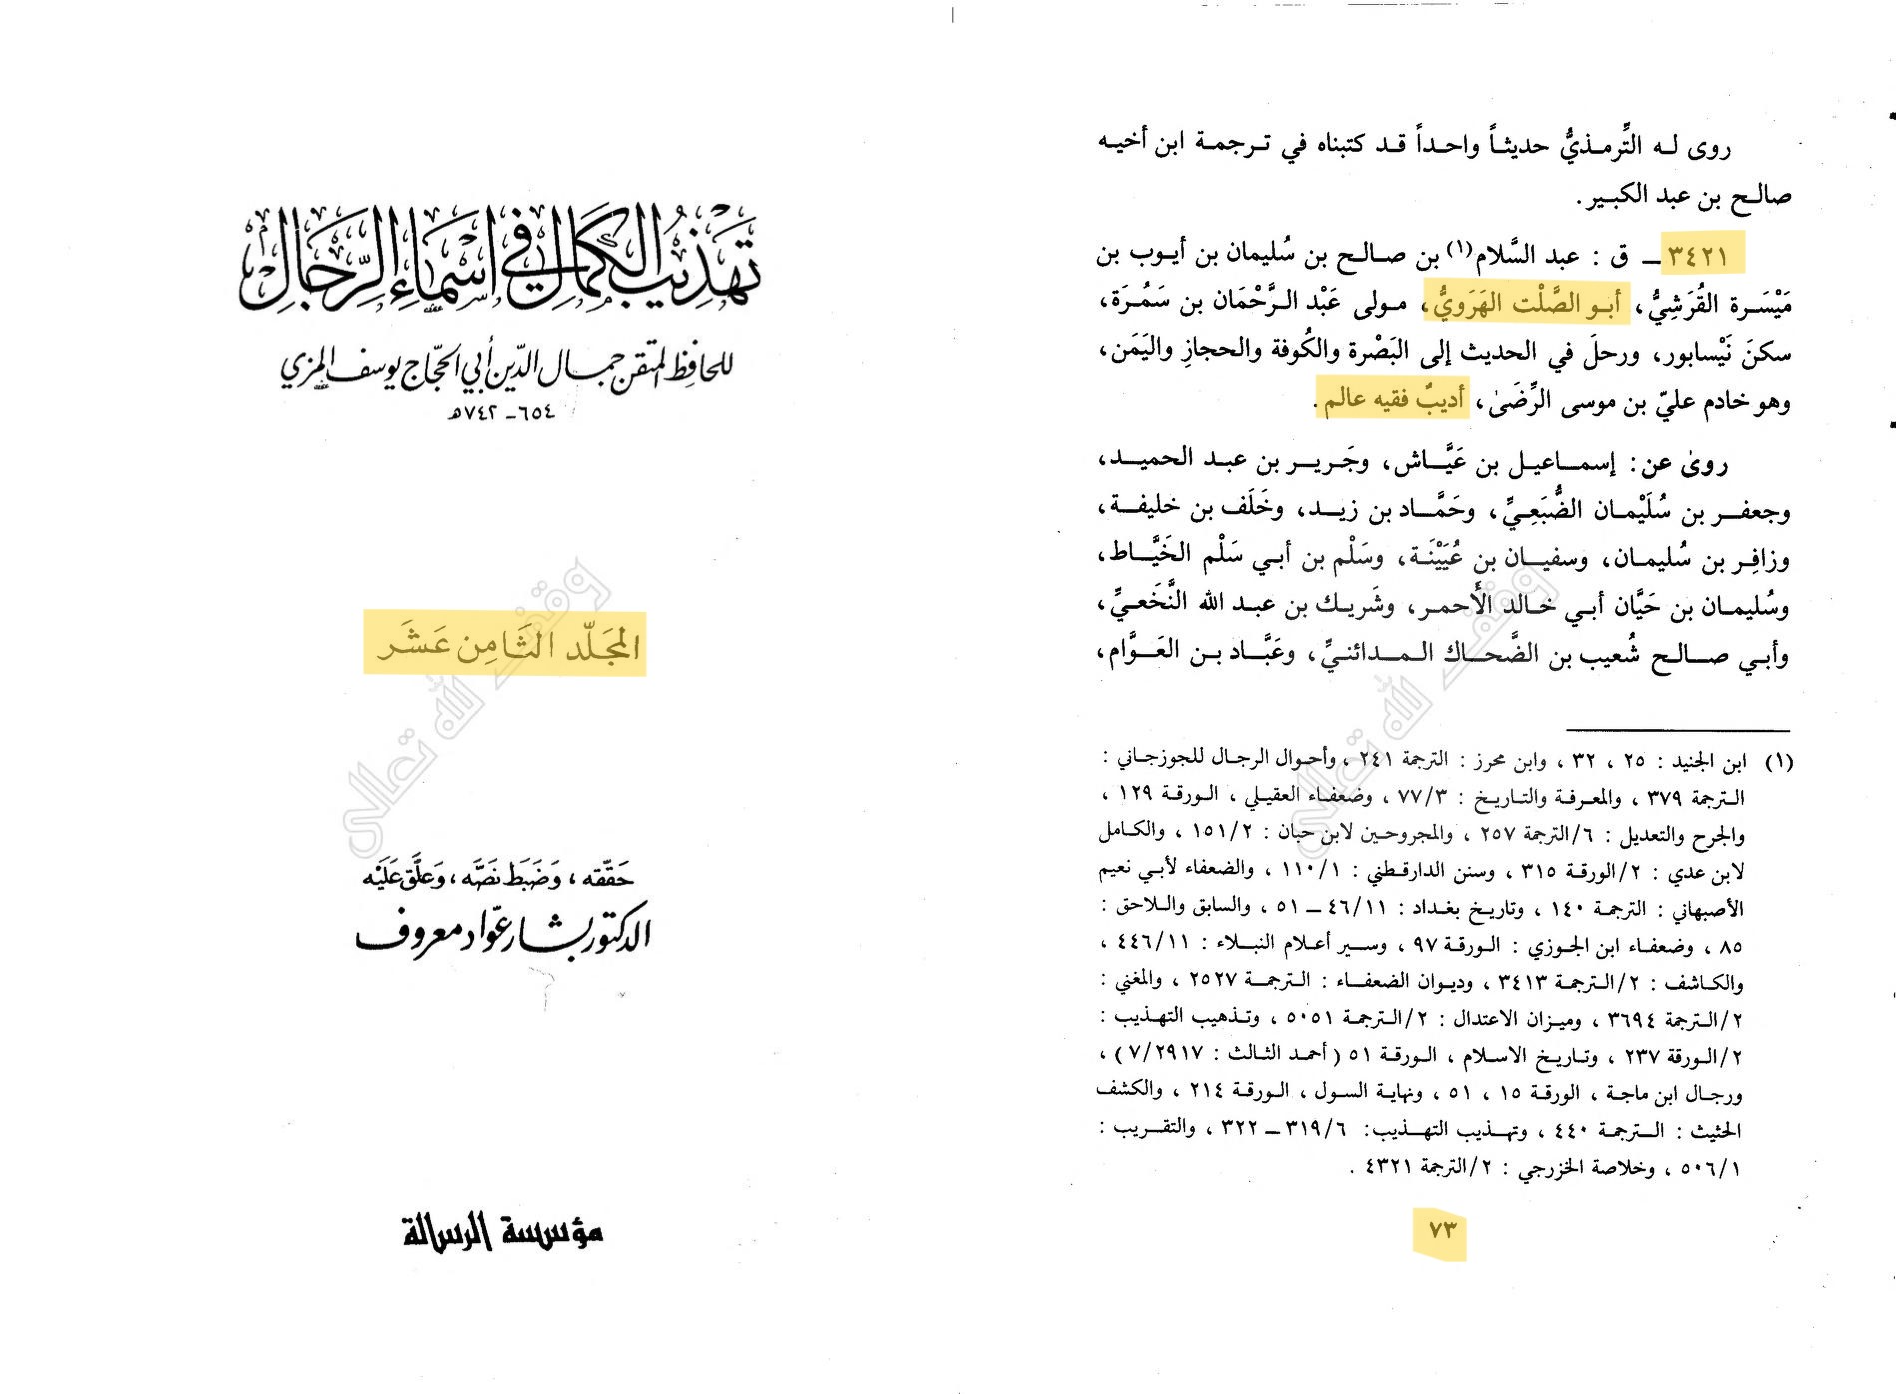 تهذيب الكمال في أسماء الرجال
للحافظ المتقن جمال الدين أبي الحجاج يوسف المزي
٦٥٤ - ٧٤٢هـ
المجَلّد الثَامِن عَشَر
حَقّقه، وَضَبَط نصَّه، وَعلَّق عَلَيْه
الدكتور بشار عوّاد معروف
مؤسسة الرسالة
روى له التِّرمذيُّ حديثاً واحداً قد كتبناه في ترجمة ابن أخيه
صالح بن عبد الكبير.
٣٤٢١ ـ ق : عبد السَّلام(١) بن صالح بن سُليمان بن أيوب بن
مَيْسَرة القُرَشِيُّ، أبو الصَّلْت الهَرَويُّ، مولى عَبْد الرَّحْمَان بن سَمُرَة،
سكنَ نَيْسابور، ورحلَ في الحديث إلى البَصْرة والكُوفة والحجازِ واليَمَن،
وهو خادم عليّ بن موسى الرِّضَىٰ، أديبٌ فقيه عالم.
روىٰ عن: إسماعيل بن عَيَّاش، وجَرير بن عبد الحميد،
وجعفر بن سُلَيْمان الضُّبَعِيِّ، وحَمَّاد بن زيد، وخَلَف بن خليفة،
وزافِر بن سُليمان، وسفيان بن عُيَيْنَة، وسَلْم بن أبي سَلْم الخَيَّاط،
وسُليمان بن حَيَّان أبي خالد الأَحمر، وشَريك بن عبد الله النَّخَعيِّ،
وأبي صالح شُعيب بن الضَّحاك المدائنيِّ، وعَبَّاد بن العَوَّام،
(١) ابن الجنيد : ٢٥ ، ٣٢ ، وابن محرز : الترجمة ٢٤١ ، وأحوال الرجال للجوزجاني :
الترجمة ٣٧٩ ، والمعرفة والتاريخ : ٧٧/٣ ، وضعفاء العقيلي ، الورقة ١٢٩ ،
والجرح والتعديل : ٦/الترجمة ٢٥٧ ، والمجروحين لابن حبان : ١٥١/٢ ، والكامل
لابن عدي : ٢/الورقة ٣١٥ ، وسنن الدارقطني : ١١٠/١ ، والضعفاء لأبي نعيم
الأصبهاني : الترجمة ١٤٠ ، وتاريخ بغداد : ٤٦/١١ ـ ٥١ ، والسابق واللاحق :
٨٥ ، وضعفاء ابن الجوزي : الورقة ٩٧ ، وسير أعلام النبلاء : ٤٤٦/١١ ،
والكاشف : ٢/الترجمة ٣٤١٣ ، وديوان الضعفاء : الترجمة ٢٥٢٧ ، والمغني :
٢/الترجمة ٣٦٩٤ ، وميزان الاعتدال : ٢/الترجمة ٥٠٥١ ، وتذهيب التهذيب :
٢/الورقة ٢٣٧ ، وتاريخ الاسلام ، الورقة ٥١ (أحمد الثالث : ٧/٢٩١٧) ،
ورجال ابن ماجة ، الورقة ١٥ ، ٥١ ، ونهاية السول ، الورقة ٢١٤ ، والكشف
الحثيث : الترجمة ٤٤٠ ، وتهذيب التهذيب: ٣١٩/٦ ـ ٣٢٢ ، والتقريب :
٥٠٦/١ ، وخلاصة الخزرجي : ٢/الترجمة ٤٣٢١ .
٧٣
وقف لله تعالى
وقف لله تعالى